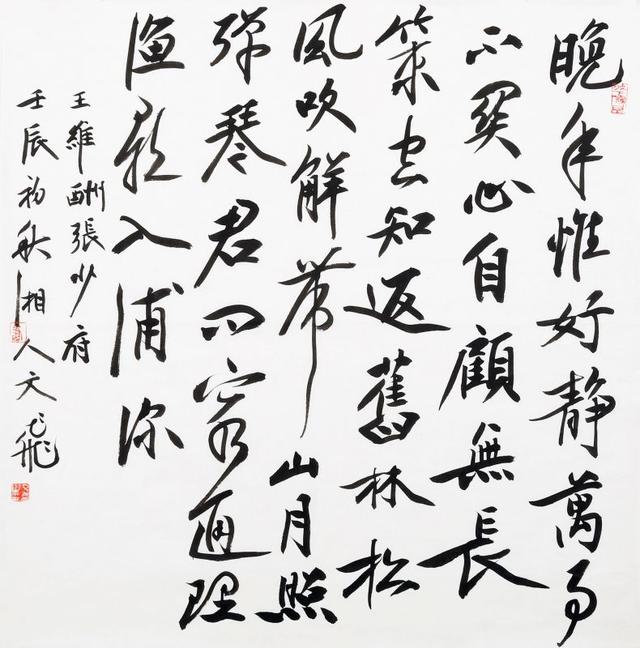 晚年惟好静萬事
不關心自顧無長
策空知返舊林松
風吹解带山月照
彈琴君問窮通理
漁歌入浦深
王維酬張少府
壬辰初秋相人文飛